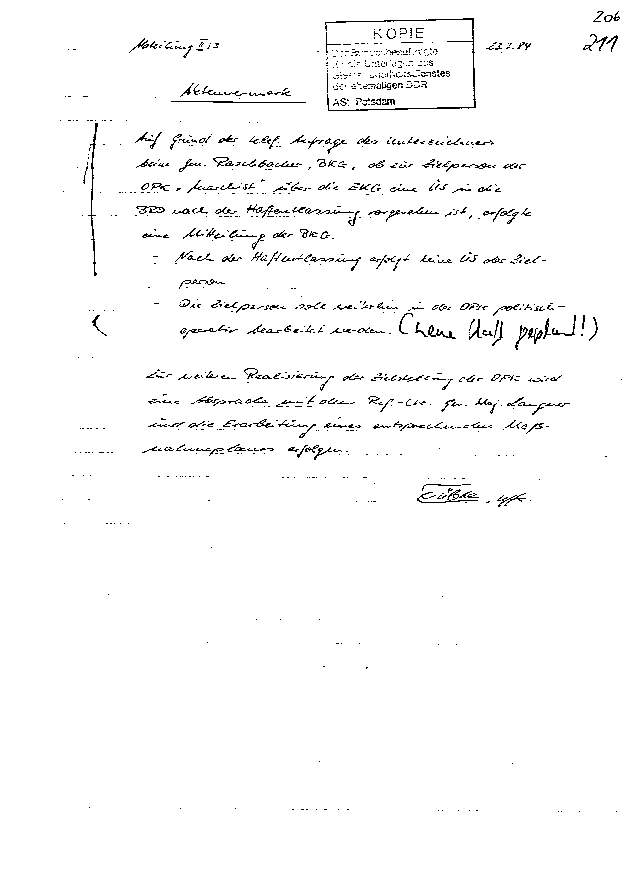 206
211
Abteilung II/3
KOPIE
23.2.84
Der Bundesbeauftragte
für die Unterlagen des
Staatssicherheitsdienstes
der ehemaligen DDR
ASt. Potsdam
Aktenvermerk
Auf Grund der telef. Anfrage des Unterzeichners
beim Gen. Raschbacher, BKG, ob zur Zielperson der
OPK "Anarchist" über die BKG eine ÜS in die
BRD nach der Haftentlassung vorgesehen ist, erfolgte
eine Mitteilung der BKG.
- Nach der Haftentlassung erfolgt keine ÜS der Ziel-
person
- Die Zielperson solle weiterhin in der OPK politisch-
operativ bearbeitet werden. (neue geplant!)
Zur weiteren Realisierung der Zielstellung der OPK wird
eine Absprache mit dem Ref.-Ltr. Gen. Maj. Langner
und die Erarbeitung eines entsprechenden Maß-
nahmeplanes erfolgen.